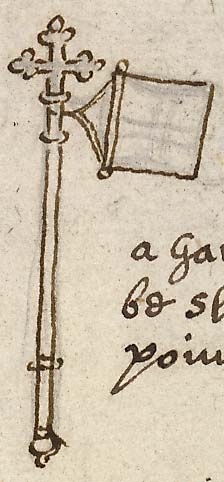 a Gar
be sl
poin